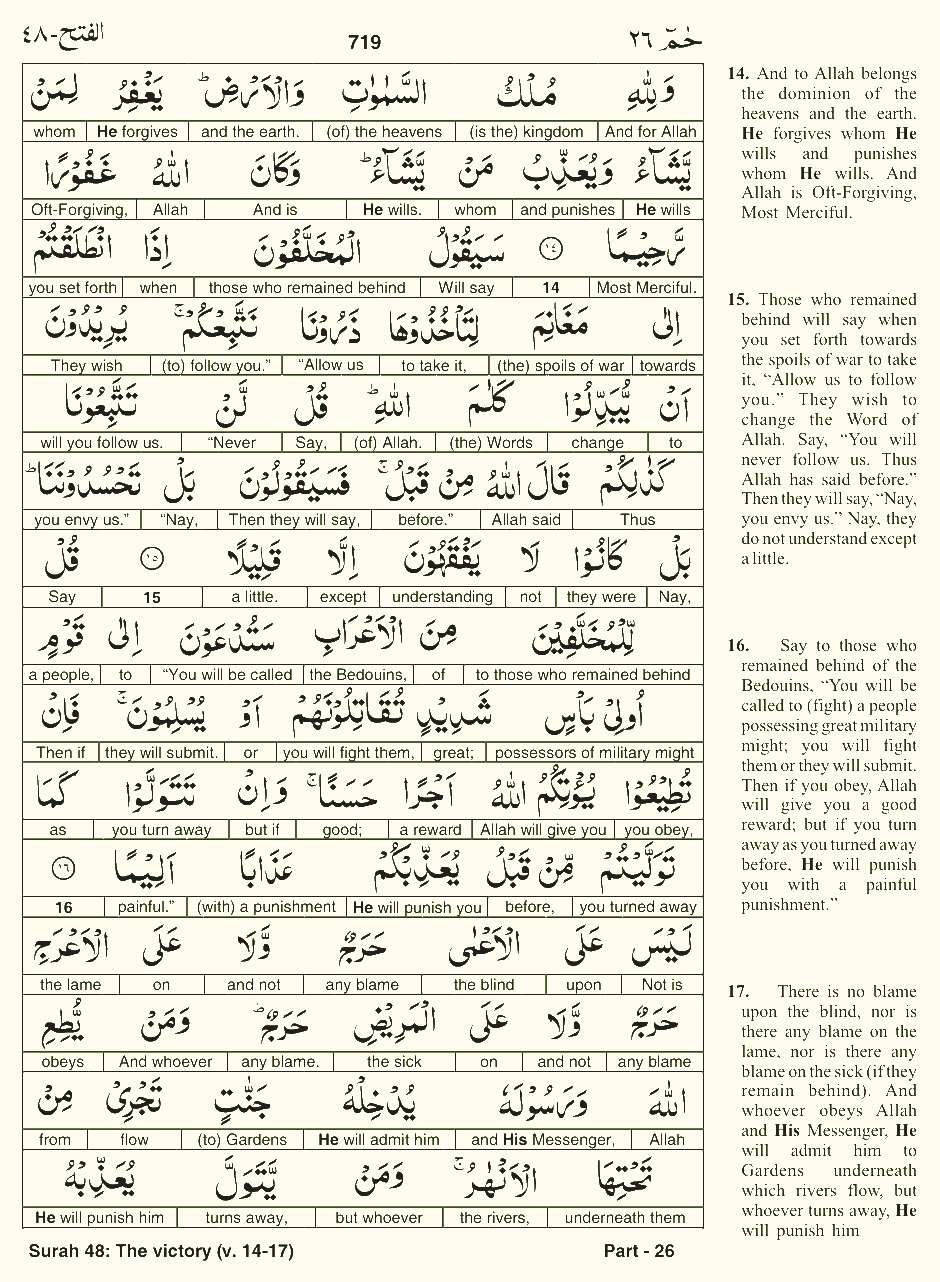 الفتح-٤٨ 719 حٰمٓ ٢٦
وَلِلّٰهِ مُلْكُ السَّمٰوٰتِ وَالْاَرْضِ ؕ يَغْفِرُ لِمَنْ
whom | He forgives | and the earth. | (of) the heavens | (is the) kingdom | And for Allah
يَّشَآءُ وَيُعَذِّبُ مَنْ يَّشَآءُ ؕ وَكَانَ اللّٰهُ غَفُوْرًا
Oft-Forgiving, | Allah | And is | He wills. | whom | and punishes | He wills
رَّحِيْمًا ١٤ سَيَقُوْلُ الْمُخَلَّفُوْنَ اِذَا انْطَلَقْتُمْ
you set forth | when | those who remained behind | Will say | 14 | Most Merciful.
اِلٰى مَغَانِمَ لِتَاْخُذُوْهَا ذَرُوْنَا نَتَّبِعْكُمْ ۚ يُرِيْدُوْنَ
They wish | (to) follow you.” | “Allow us | to take it, | (the) spoils of war | towards
اَنْ يُّبَدِّلُوْا كَلٰمَ اللّٰهِ ؕ قُلْ لَّنْ تَتَّبِعُوْنَا
will you follow us. | “Never | Say, | (of) Allah. | (the) Words | change | to
كَذٰلِكُمْ قَالَ اللّٰهُ مِنْ قَبْلُ ۚ فَسَيَقُوْلُوْنَ بَلْ تَحْسُدُوْنَنَا ؕ
you envy us.” | “Nay, | Then they will say, | before.” | Allah said | Thus
بَلْ كَانُوْا لَا يَفْقَهُوْنَ اِلَّا قَلِيْلًا ١٥ قُلْ
Say | 15 | a little. | except | understanding | not | they were | Nay,
لِّلْمُخَلَّفِيْنَ مِنَ الْاَعْرَابِ سَتُدْعَوْنَ اِلٰى قَوْمٍ
a people, | to | “You will be called | the Bedouins, | of | to those who remained behind
اُولِيْ بَاْسٍ شَدِيْدٍ تُقَاتِلُوْنَهُمْ اَوْ يُسْلِمُوْنَ ۚ فَاِنْ
Then if | they will submit. | or | you will fight them, | great; | possessors of military might
تُطِيْعُوْا يُؤْتِكُمُ اللّٰهُ اَجْرًا حَسَنًا ۚ وَاِنْ تَتَوَلَّوْا كَمَا
as | you turn away | but if | good; | a reward | Allah will give you | you obey,
تَوَلَّيْتُمْ مِّنْ قَبْلُ يُعَذِّبْكُمْ عَذَابًا اَلِيْمًا ١٦
16 | painful.” | (with) a punishment | He will punish you | before, | you turned away
لَيْسَ عَلَى الْاَعْمٰى حَرَجٌ وَّلَا عَلَى الْاَعْرَجِ
the lame | on | and not | any blame | the blind | upon | Not is
حَرَجٌ وَّلَا عَلَى الْمَرِيْضِ حَرَجٌ ؕ وَمَنْ يُّطِعِ
obeys | And whoever | any blame. | the sick | on | and not | any blame
اللّٰهَ وَرَسُوْلَهٗ يُدْخِلْهُ جَنّٰتٍ تَجْرِيْ مِنْ
from | flow | (to) Gardens | He will admit him | and His Messenger, | Allah
تَحْتِهَا الْاَنْهٰرُ ۚ وَمَنْ يَّتَوَلَّ يُعَذِّبْهُ
He will punish him | turns away, | but whoever | the rivers, | underneath them
14. And to Allah belongs
the dominion of the
heavens and the earth.
He forgives whom He
wills and punishes
whom He wills. And
Allah is Oft-Forgiving,
Most Merciful.
15. Those who remained
behind will say when
you set forth towards
the spoils of war to take
it, “Allow us to follow
you.” They wish to
change the Word of
Allah. Say, “You will
never follow us. Thus
Allah has said before.”
Then they will say, “Nay,
you envy us.” Nay, they
do not understand except
a little.
16. Say to those who
remained behind of the
Bedouins, “You will be
called to (fight) a people
possessing great military
might; you will fight
them or they will submit.
Then if you obey, Allah
will give you a good
reward; but if you turn
away as you turned away
before, He will punish
you with a painful
punishment.”
17. There is no blame
upon the blind, nor is
there any blame on the
lame, nor is there any
blame on the sick (if they
remain behind). And
whoever obeys Allah
and His Messenger, He
will admit him to
Gardens underneath
which rivers flow, but
whoever turns away, He
will punish him
Surah 48: The victory (v. 14-17) Part - 26